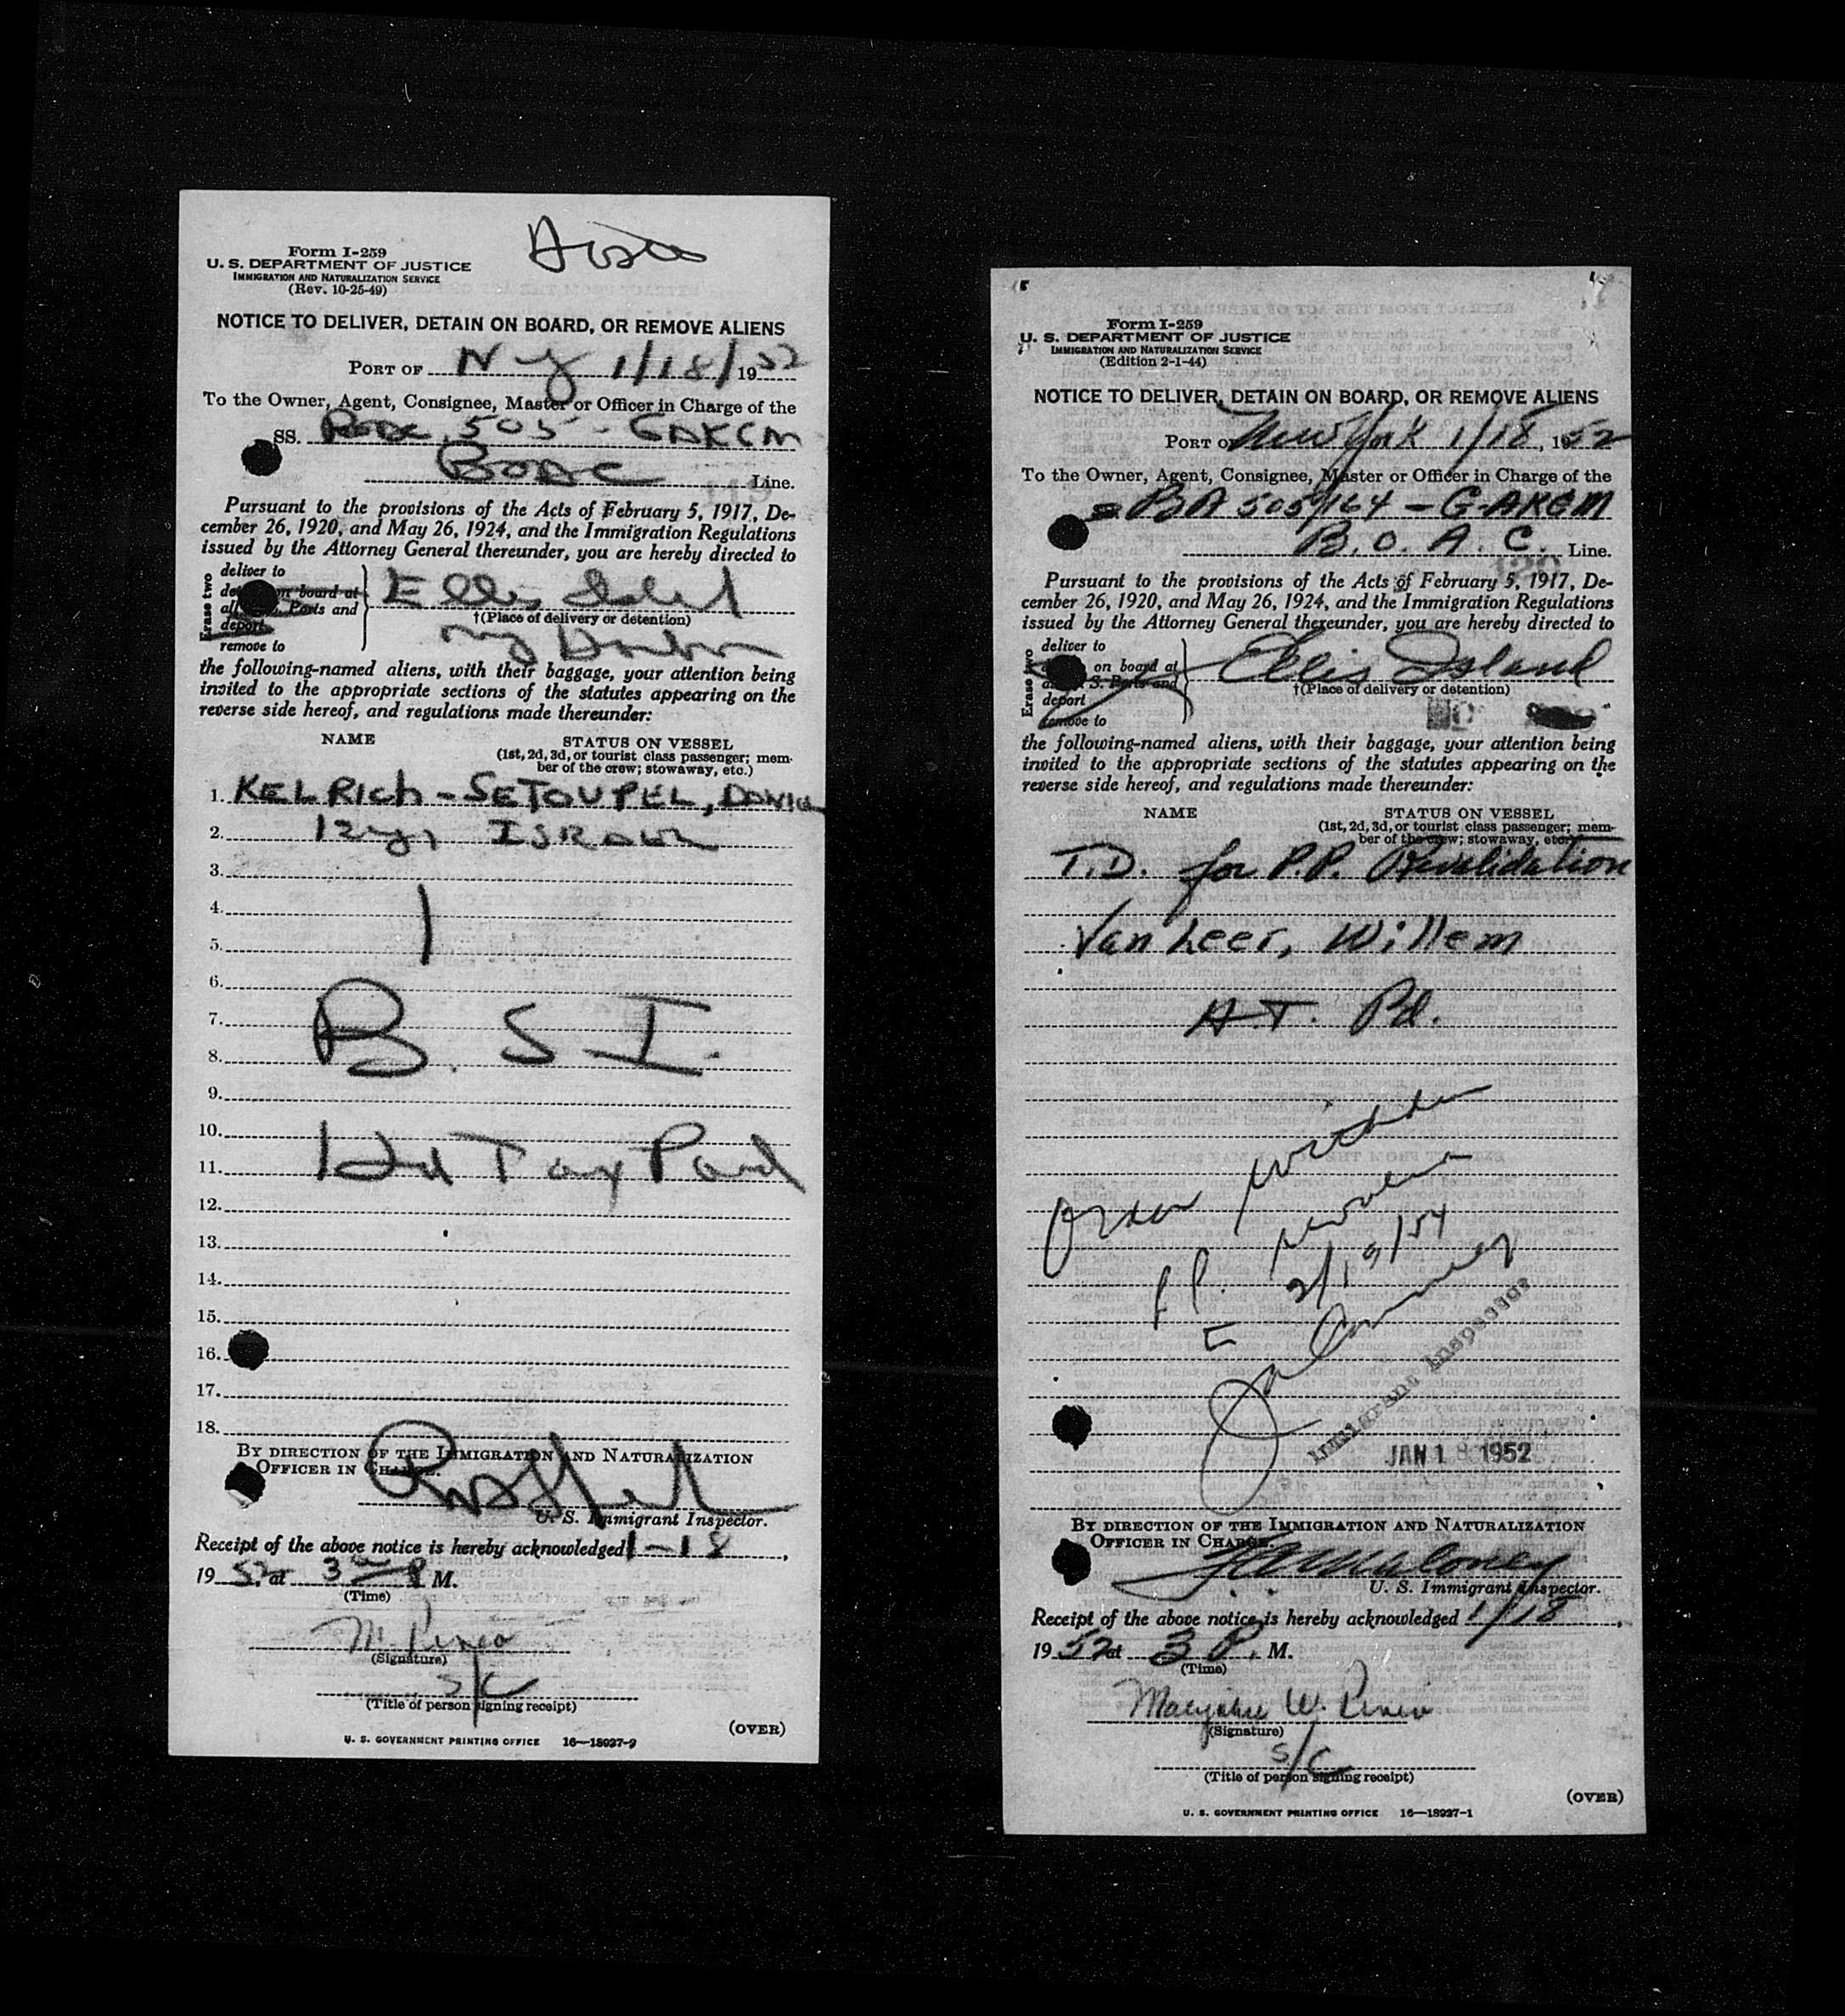 Form I-259
U. S. DEPARTMENT OF JUSTICE
IMMIGRATION AND NATURALIZATION SERVICE
(Rev. 10-25-49)
NOTICE TO DELIVER, DETAIN ON BOARD, OR REMOVE ALIENS
PORT OF N Y 1/18/1952
To the Owner, Agent, Consignee, Master or Officer in Charge of the
SS. BOAC 505 - GAKGM
BOAC Line.
Pursuant to the provisions of the Acts of February 5, 1917, De-
cember 26, 1920, and May 26, 1924, and the Immigration Regulations
issued by the Attorney General thereunder, you are hereby directed to
Erase two
deliver to
on board at
Ports and
deport
remove to
Ellis Island
†(Place of delivery or detention)
NY Harbor
the following-named aliens, with their baggage, your attention being
invited to the appropriate sections of the statutes appearing on the
reverse side hereof, and regulations made thereunder:
NAME STATUS ON VESSEL
(1st, 2d, 3d, or tourist class passenger; mem-
ber of the crew; stowaway, etc.)
1. KELRICH - SETOUPEL, DANIEL
2. 12 yr ISRAEL
3.
4. 1
5.
6.
7. B. S I.
8.
9.
10.
11. Hd Tax Paid
12.
13.
14.
15.
16.
17.
18.
BY DIRECTION OF THE IMMIGRATION AND NATURALIZATION
OFFICER IN CHARGE.
U. S. Immigrant Inspector.
Receipt of the above notice is hereby acknowledged 1-18,
1952 at 3 P M.
(Time)
(Signature)
S/C
(Title of person signing receipt)
(OVER)
U. S. GOVERNMENT PRINTING OFFICE 16—18927-2
Form I-259
U. S. DEPARTMENT OF JUSTICE
IMMIGRATION AND NATURALIZATION SERVICE
(Edition 2-1-44)
NOTICE TO DELIVER, DETAIN ON BOARD, OR REMOVE ALIENS
PORT OF New York 1/18, 1952
To the Owner, Agent, Consignee, Master or Officer in Charge of the
BA 505/164 - G-AKGM
B. O. A. C. Line.
Pursuant to the provisions of the Acts of February 5, 1917, De-
cember 26, 1920, and May 26, 1924, and the Immigration Regulations
issued by the Attorney General thereunder, you are hereby directed to
Erase two
deliver to
on board at
S. Ports and
deport
remove to
Ellis Island
†(Place of delivery or detention)
the following-named aliens, with their baggage, your attention being
invited to the appropriate sections of the statutes appearing on the
reverse side hereof, and regulations made thereunder:
NAME STATUS ON VESSEL
(1st, 2d, 3d, or tourist class passenger; mem-
ber of the crew; stowaway, etc.)
T.D. for P.P. Revalidation
Van Leer, Willem
H.T. Pd.
P.P.
Immigrant Inspector
JAN 18 1952
BY DIRECTION OF THE IMMIGRATION AND NATURALIZATION
OFFICER IN CHARGE.
Maloney
U. S. Immigrant Inspector.
Receipt of the above notice is hereby acknowledged 1/18,
1952 at 3 P. M.
(Time)
Marjorie W.
(Signature)
S/C
(Title of person signing receipt)
(OVER)
U. S. GOVERNMENT PRINTING OFFICE 16—18927-1